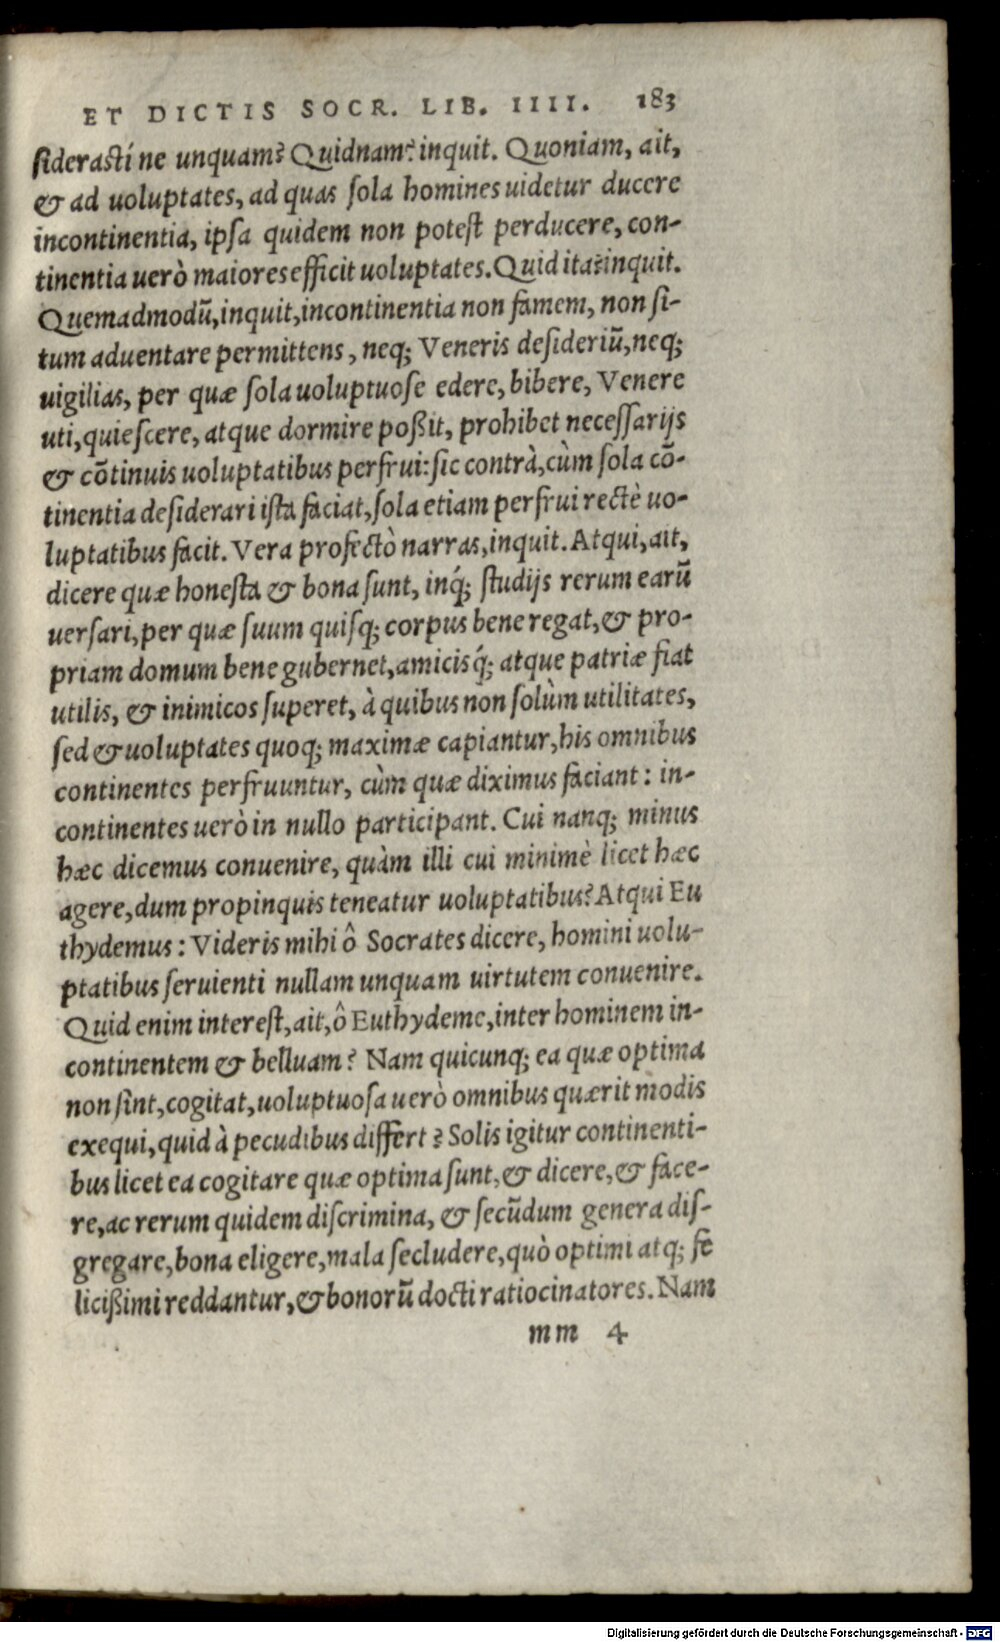 ET DICTIS SOCR. LIB. IIII. 183
siderastí ne unquam? Quidnam? inquit. Quoniam, ait,
& ad uoluptates, ad quas sola homines uidetur ducere
incontinentia, ipsa quidem non potest perducere, con-
tinentia uerò maiores efficit uoluptates. Quid ita? inquit.
Quemadmodū, inquit, incontinentia non famem, non si-
tum aduentare permittens, neq; Veneris desideriū, neq;
uigilias, per quæ sola uoluptuose edere, bibere, Venere
uti, quiescere, atque dormire poßit, prohibet necessarijs
& cōtinuis uoluptatibus perfrui: sic contrà, cùm sola cō-
tinentia desiderari ista faciat, sola etiam perfrui rectè uo-
luptatibus facit. Vera profectò narras, inquit. Atqui, ait,
dicere quæ honesta & bona sunt, inq́; studijs rerum earū
uersari, per quæ suum quisq; corpus bene regat, & pro-
priam domum bene gubernet, amicisq́; atque patriæ fiat
utilis, & inimicos superet, à quibus non solùm utilitates,
sed & uoluptates quoq; maximæ capiantur, his omnibus
continentes perfruuntur, cùm quæ diximus faciant: in-
continentes uerò in nullo participant. Cui nanq; minus
hæc dicemus conuenire, quàm illi cui minimè licet hæc
agere, dum propinquis teneatur uoluptatibus? Atqui Eu
thydemus: Videris mihi ô Socrates dicere, homini uolu-
ptatibus seruienti nullam unquam uirtutem conuenire.
Quid enim interest, ait, ô Euthydeme, inter hominem in-
continentem & belluam? Nam quicunq; ea quæ optima
non sint, cogitat, uoluptuosa uerò omnibus quærit modis
exequi, quid à pecudibus differt? Solis igitur continenti-
bus licet ea cogitare quæ optima sunt, & dicere, & face-
re, ac rerum quidem discrimina, & secūdum genera dis-
gregare, bona eligere, mala secludere, quò optimi atq; fe
licißimi reddantur, & bonorū docti ratiocinatores. Nam
mm 4
Digitalisierung gefördert durch die Deutsche Forschungsgemeinschaft - DFG